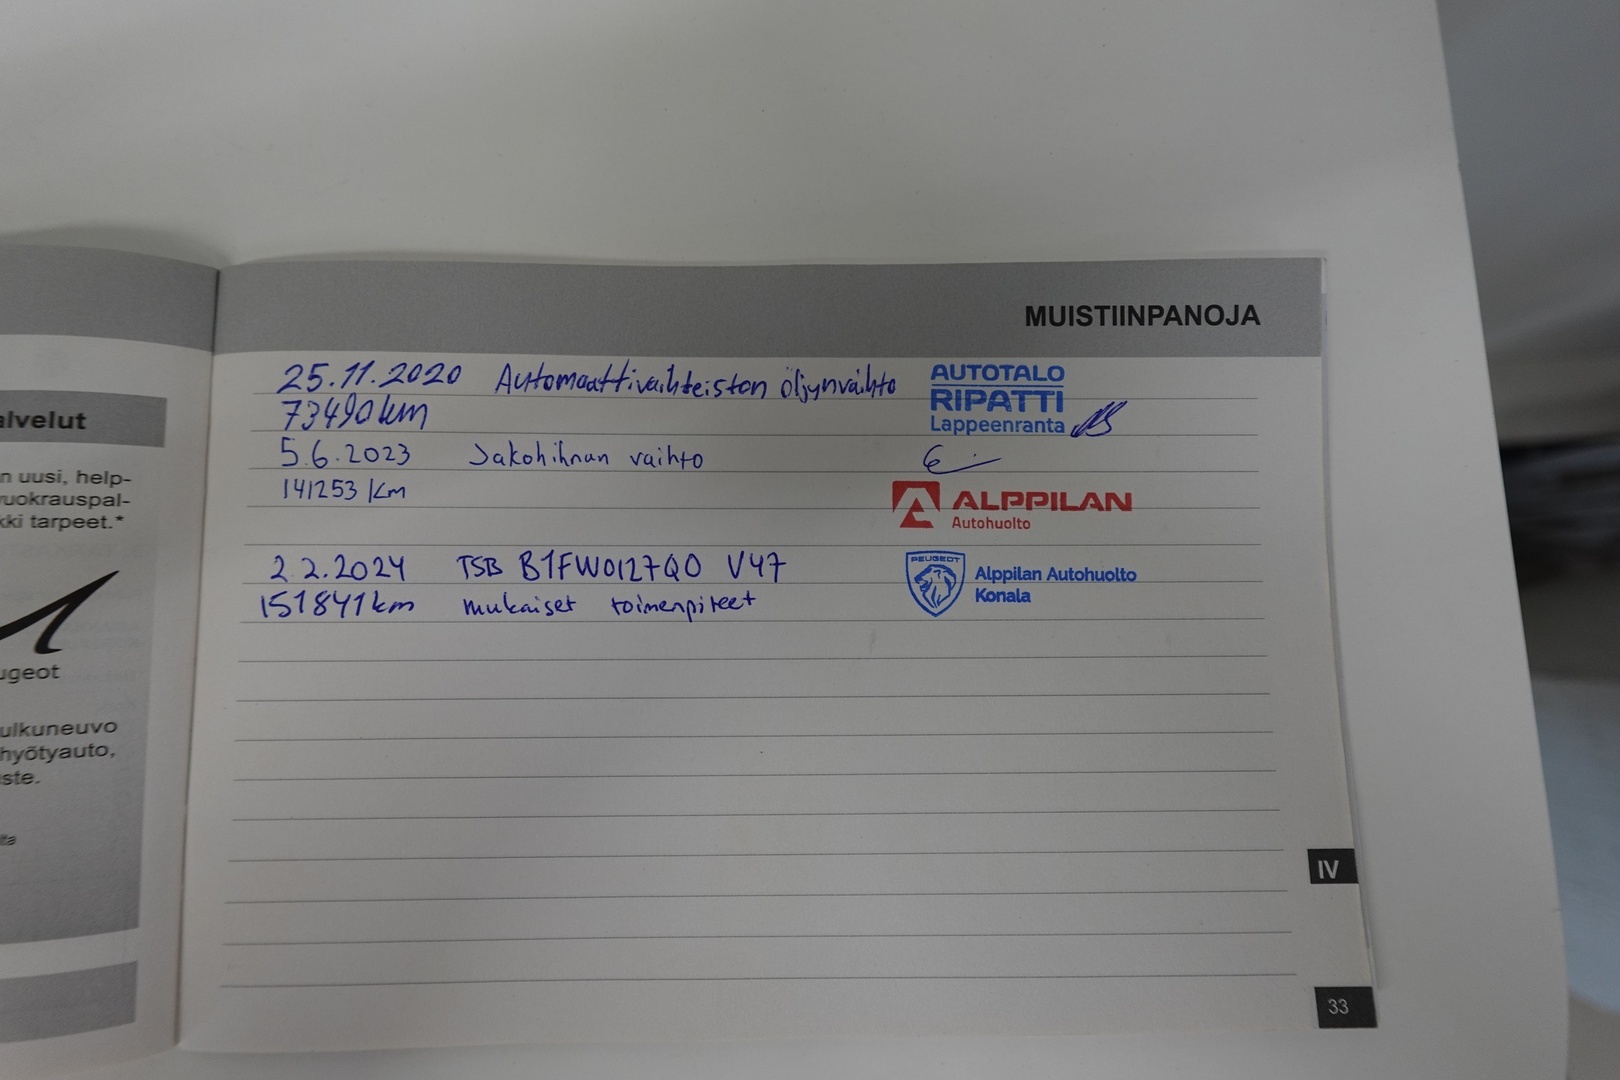 alvelut
n uusi, help-
vuokrauspal-
kki tarpeet.*
ugeot
ulkuneuvo
hyötyauto,
ste.
MUISTIINPANOJA
25.11.2020 Automaattivaihteiston öljynvaihto
73490km
AUTOTALO
RIPATTI
Lappeenranta
5.6.2023 Jakohihnan vaihto
141253 km
ALPPILAN
Autohuolto
2.2.2024 TSB B1FW0127Q0 V47
151841km mukaiset toimenpiteet
PEUGEOT
Alppilan Autohuolto
Konala
IV
33